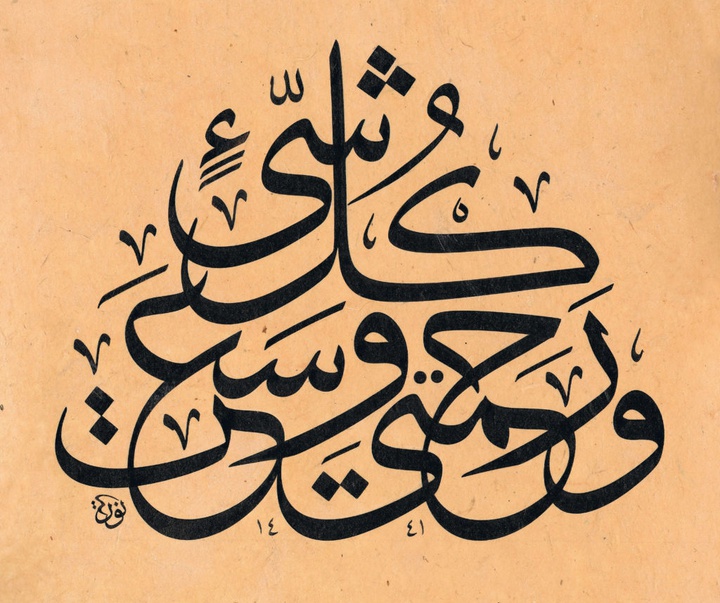 ورحمتي وسعت كل شيء
نورية
١٤ ٤١